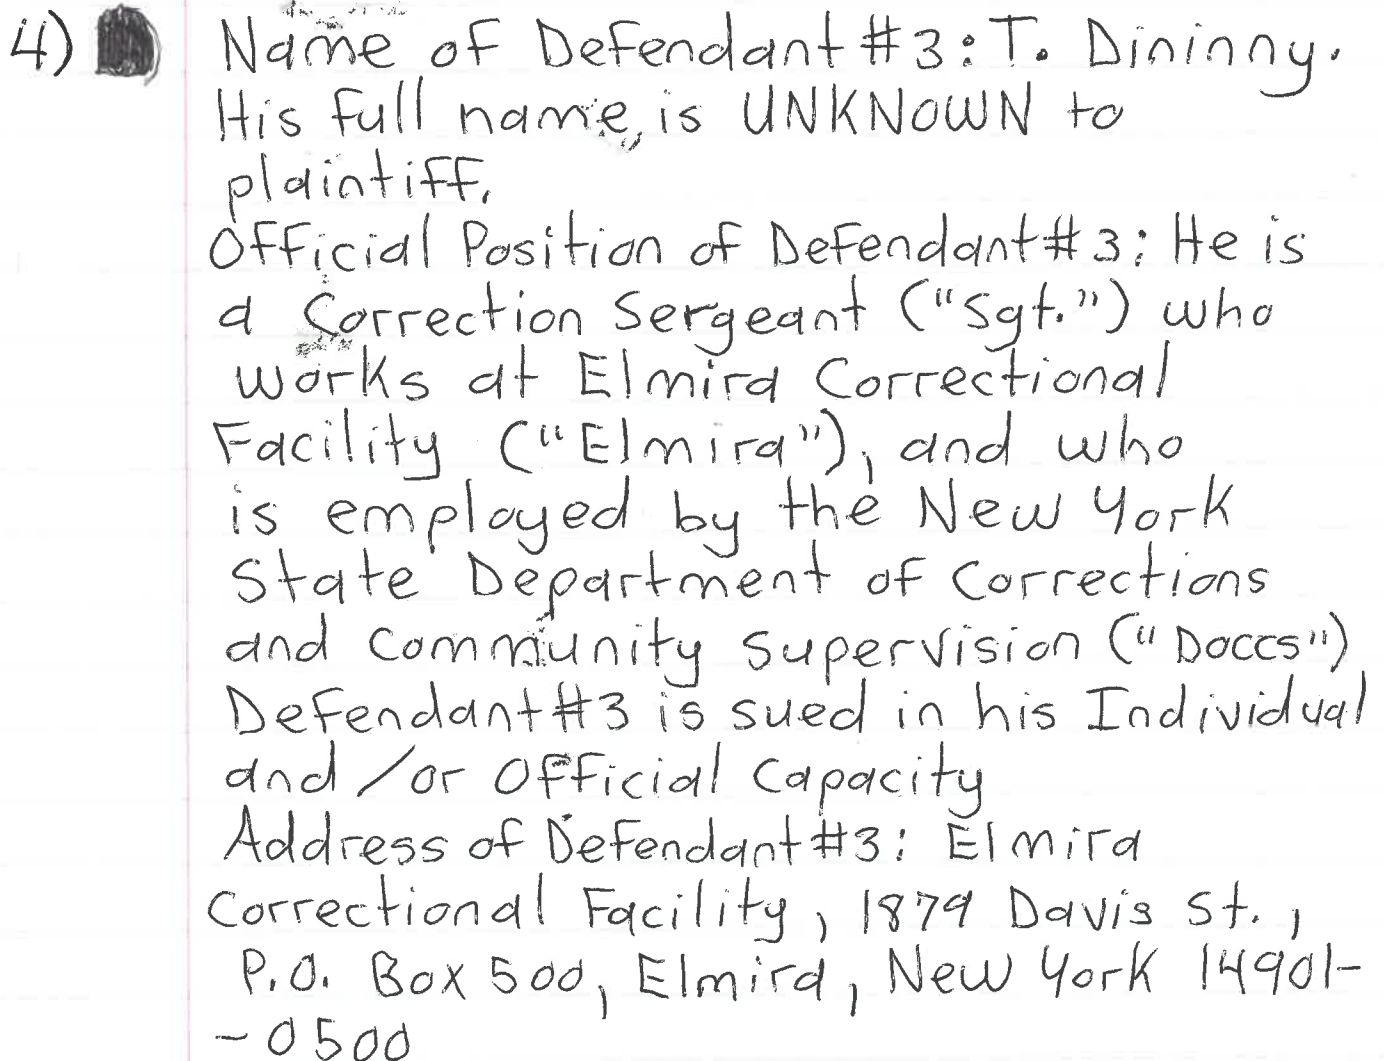 4) Name of Defendant #3: T. Dininny.
His full name, is UNKNOWN to
plaintiff.
Official Position of Defendant #3: He is
a Correction Sergeant ("Sgt.") who
works at Elmira Correctional
Facility ("Elmira"), and who
is employed by the New York
State Department of Corrections
and Community Supervision ("DOCCS")
Defendant #3 is sued in his Individual
and/or Official Capacity
Address of Defendant #3: Elmira
Correctional Facility, 1879 Davis St.,
P.O. Box 500, Elmira, New York 14901-
-0500